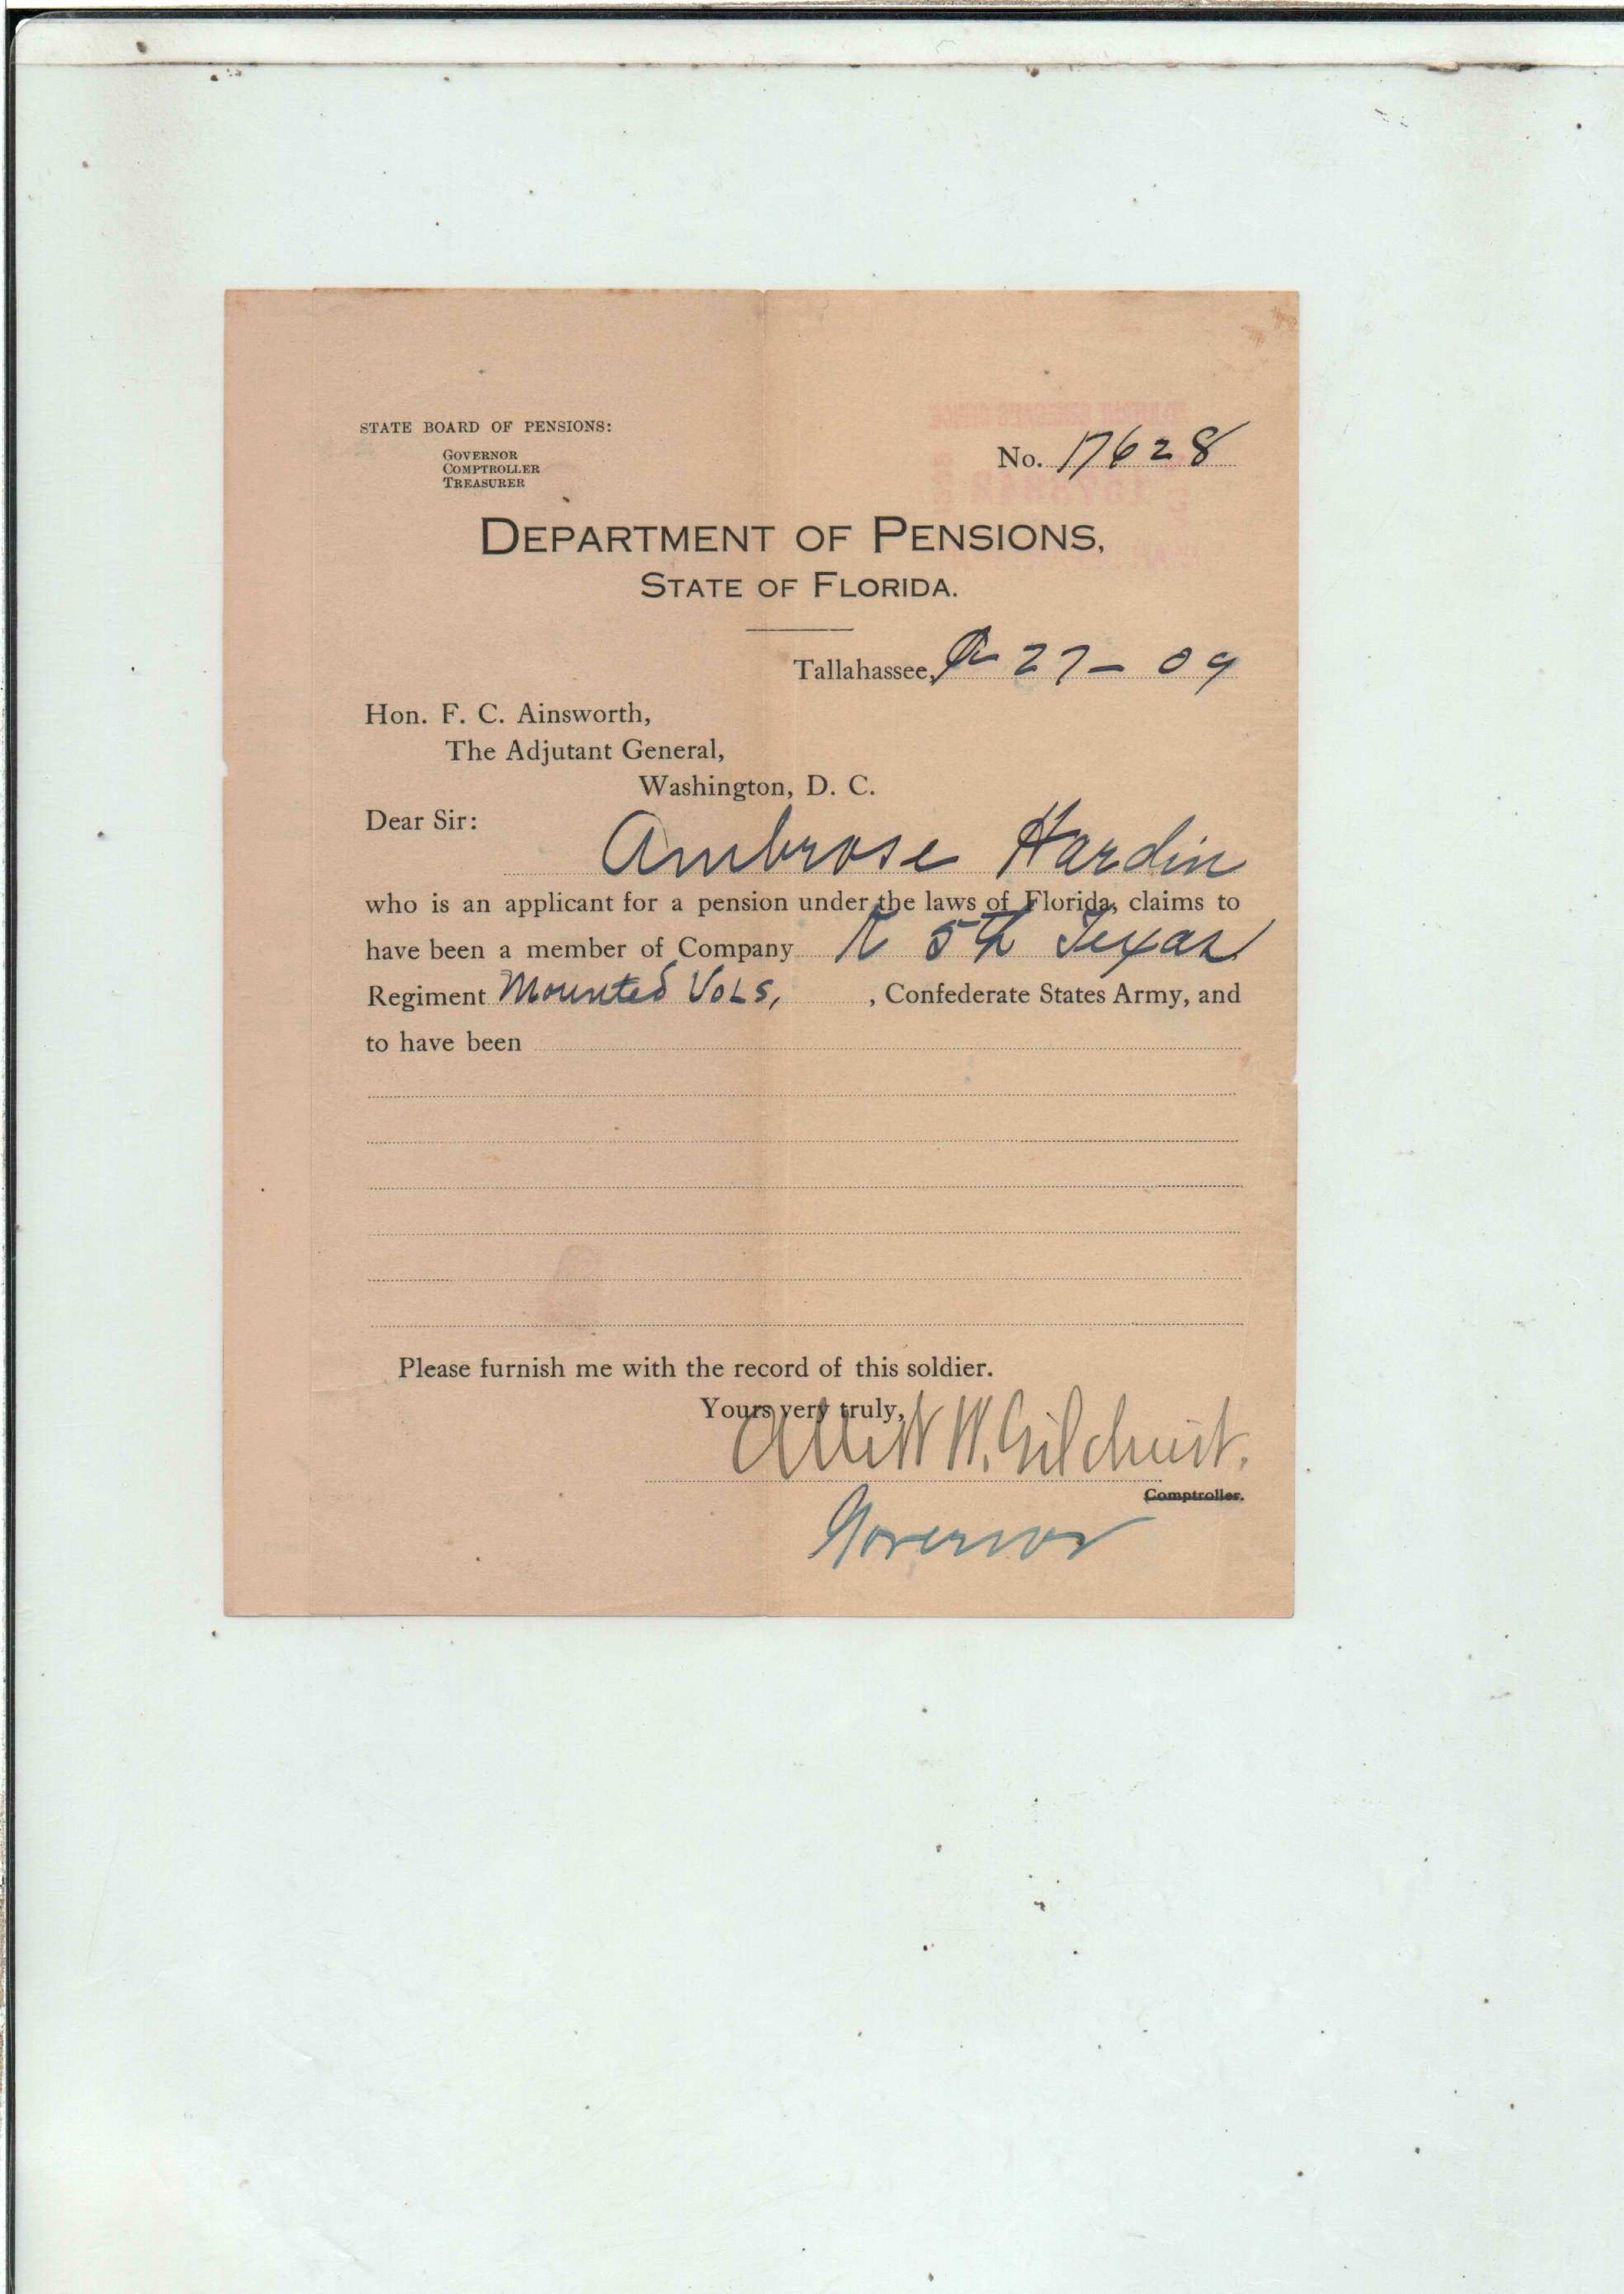 STATE BOARD OF PENSIONS:
GOVERNOR
COMPTROLLER
TREASURER
No. 17628
DEPARTMENT OF PENSIONS,
STATE OF FLORIDA.
Tallahassee, 27 - 09
Hon. F. C. Ainsworth,
The Adjutant General,
Washington, D. C.
Dear Sir:
Ambrose Hardin
who is an applicant for a pension under the laws of Florida, claims to
have been a member of Company K 5th Texas
Regiment Mounted Vols, , Confederate States Army, and
to have been
Please furnish me with the record of this soldier.
Yours very truly,
Albert W. Gilchrist.
Comptroller.
Governor